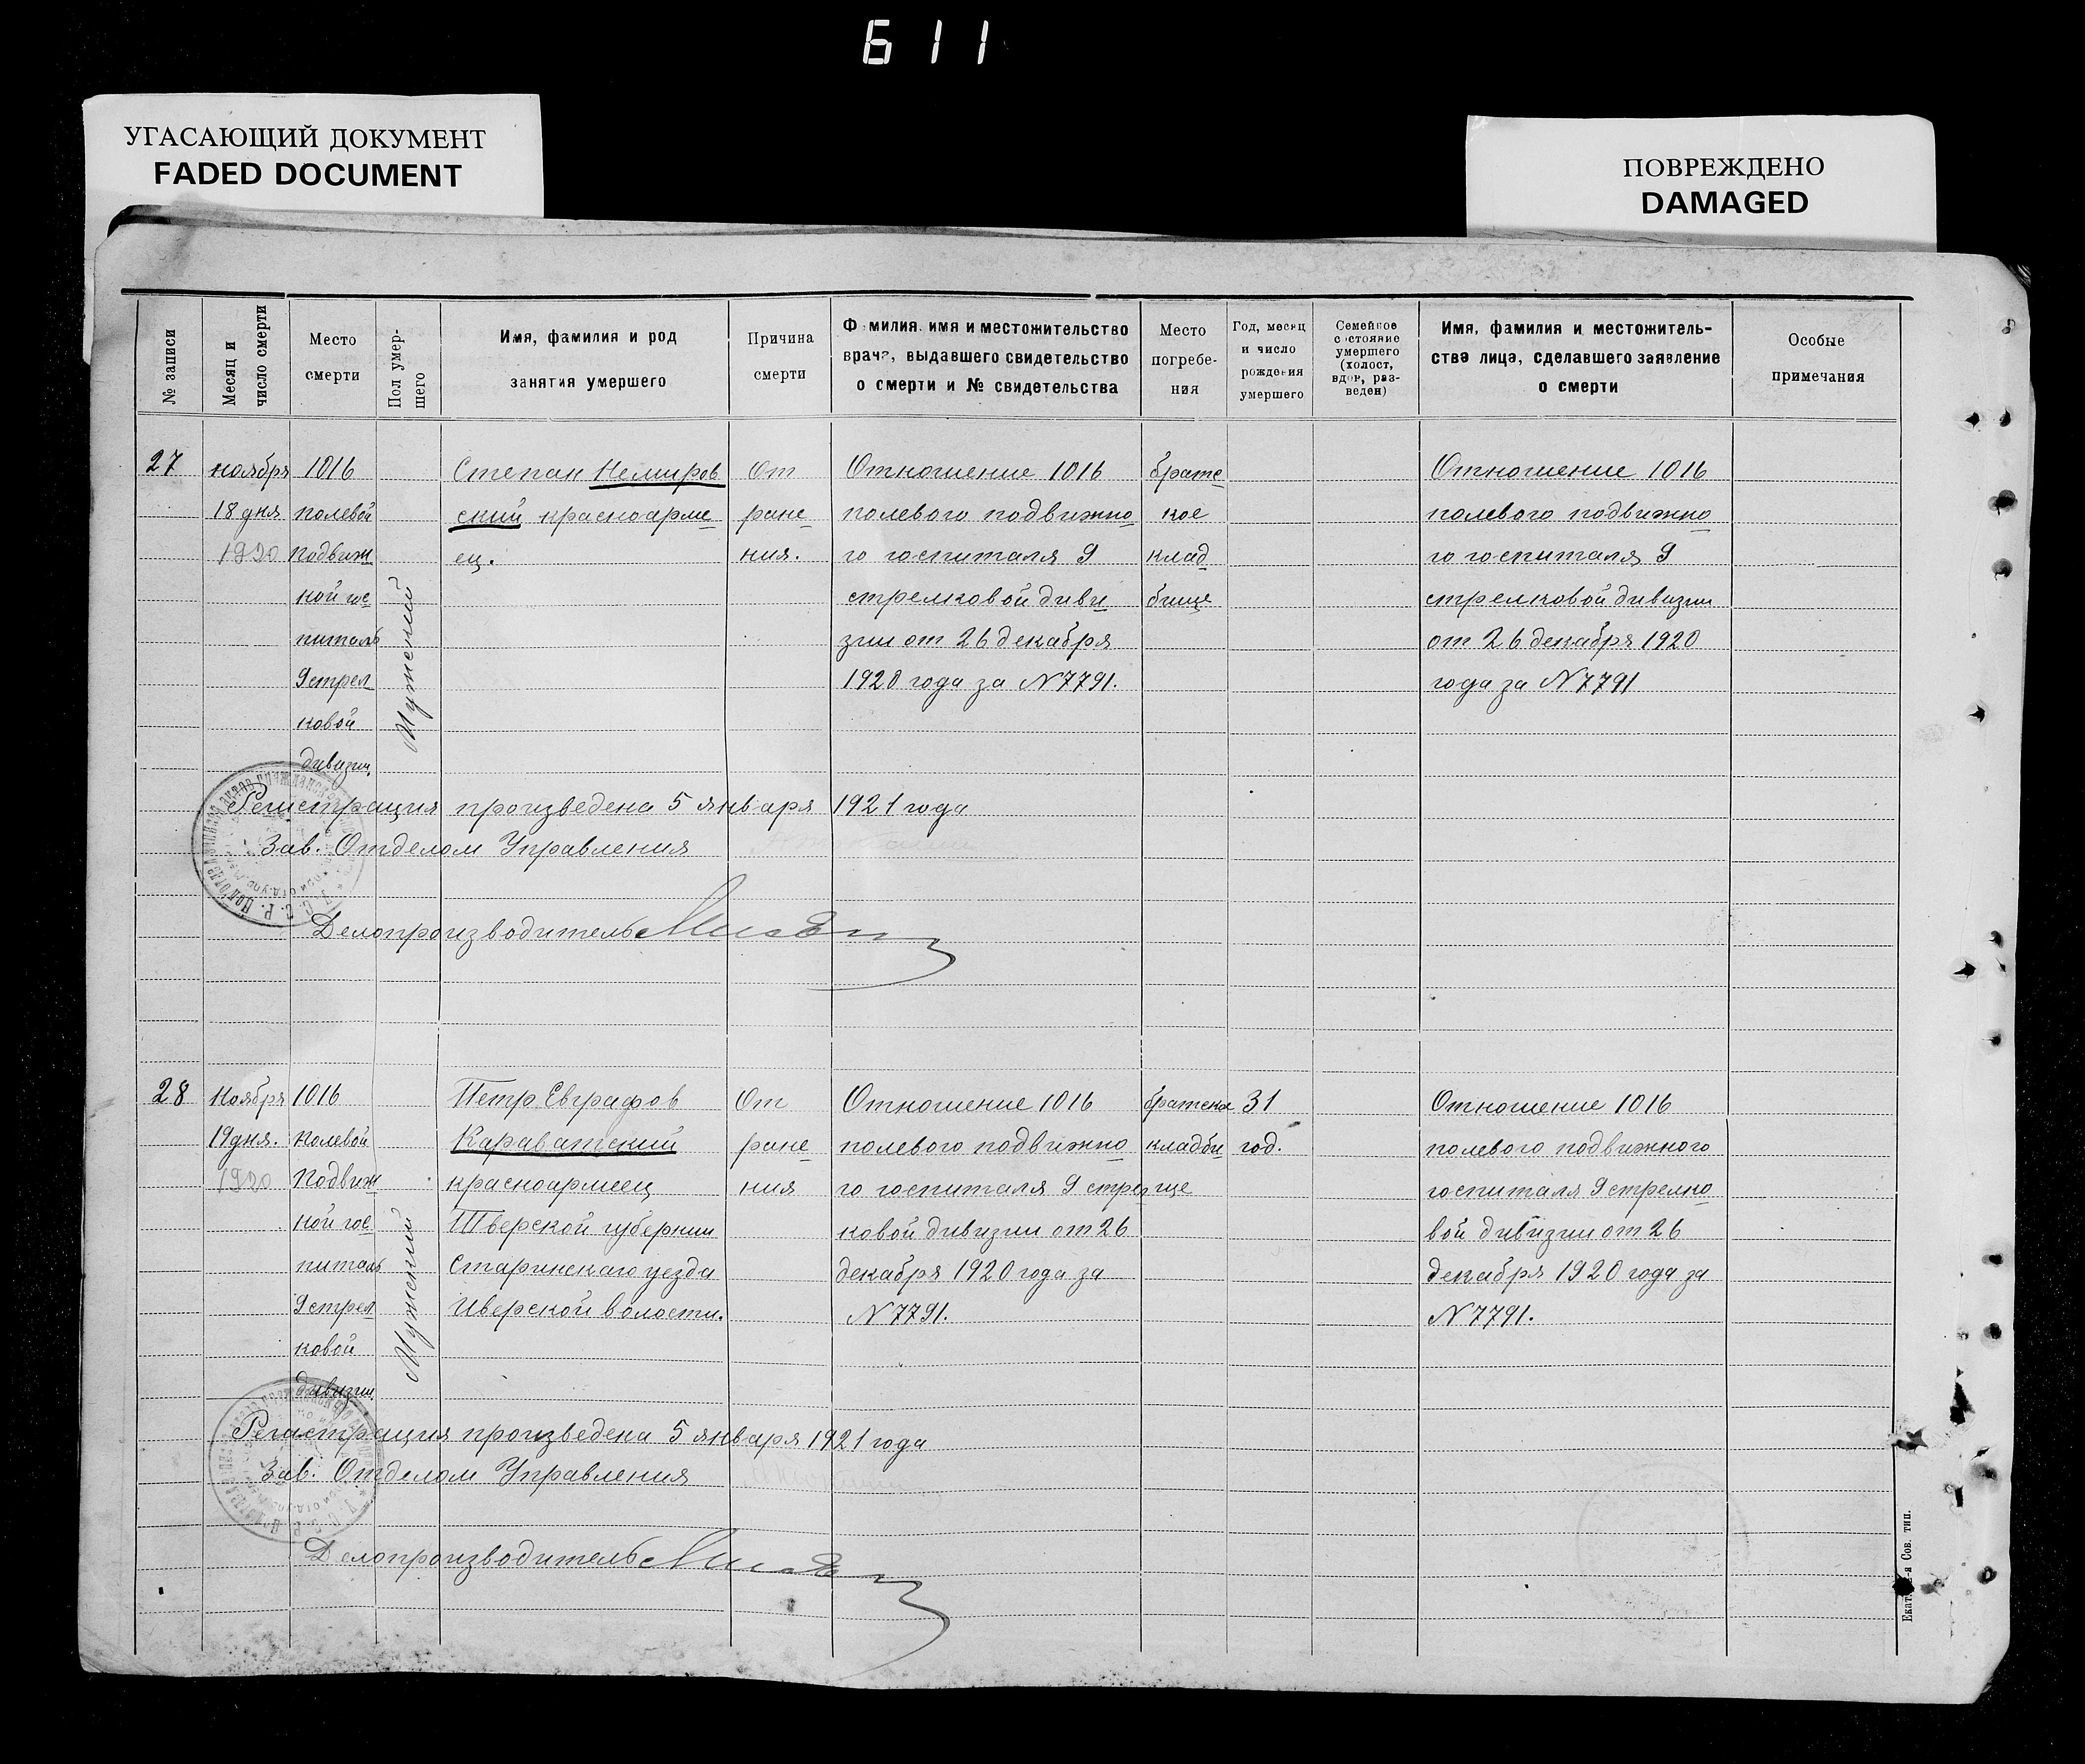 611
УГАСАЮЩИЙ ДОКУМЕНТ
FADED DOCUMENT
ПОВРЕЖДЕНО
DAMAGED
№ записи
Месяц и
число смерти
Место
смерти
Пол умер-
шего
Имя, фамилия и род
занятия умершего
Причина
смерти
Фамилия, имя и местожительство
врача, выдавшего свидетельство
о смерти и № свидетельства
Место
погребе-
ния
Год, месяц
и число
рождения
умершего
Семейное
состояние
умершего
(холост,
вдов, раз-
веден)
Имя, фамилия и местожитель-
ства лица, сделавшего заявление
о смерти
Особые
примечания
27
ноября
18 дня
1920
1016
полевой
подвиж
ной гос
питаль
9 стрел
ковой
дивизии.
Мужской
Степан Немиров
ский красноарме
ец.
От
ране
ния.
Отношение 1016
полевого подвижно
го госпиталя 9
стрелковой диви
зии от 26 декабря
1920 года за N 7791.
братс
кое
клад
бище
Отношение 1016
полевого подвижно
го госпиталя 9
стрелковой дивизии
от 26 декабря 1920
года за N 7791
Регистрация произведена 5 января 1921 года
Зав. Отделом Управления
Делопроизводитель
28
Ноября
19 дня.
1920
1016
полевой
Подвиж
ной гос
питаль
9 стрел
ковой
дивизии.
Мужский
Петр Евграфов
Караватский
красноармеец
Тверской губернии
Старинскаго уезда
Иверской волости.
От
ране
ния
Отношение 1016
полевого подвижно
го госпиталя 9 стрел
ковой дивизии от 26
декабря 1920 года за
N 7791.
братское
кладби
ще
31
год.
Отношение 1016
полевого подвижного
госпиталя 9 стрелко
вой дивизии от 26
декабря 1920 года за
N 7791.
Регистрация произведена 5 января 1921 года
Зав. Отделом Управления
Делопроизводитель
Сов. тип.